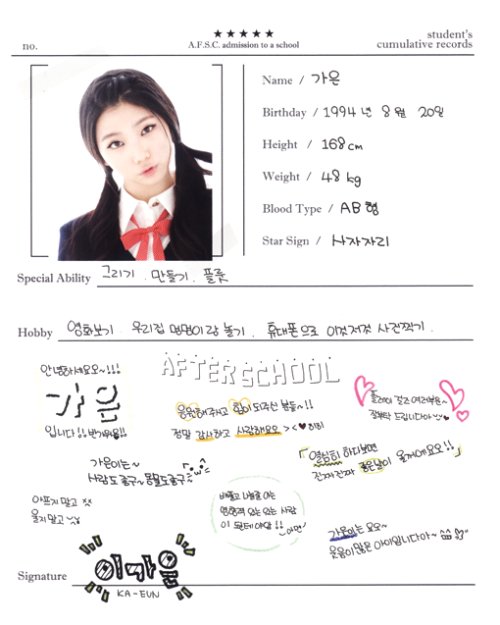 no.
★★★★★
A.F.S.C. admission to a school
student's
cumulative records
Name / 가은
Birthday / 1994년 8월 20일
Height / 168cm
Weight / 48 kg
Blood Type / AB형
Star Sign / 사자자리
Special Ability 그리기. 만들기. 플룻
Hobby 영화보기. 우리집 멍멍이랑 놀기. 휴대폰으로 이것저것 사진찍기.
안녕하세요오~!!!
가은
입니다!! 반가워용!!
AFTERSCHOOL
응원해주시고 힘이 되주신 분들~!!
정말 감사하고 사랑해요오 > <♥ 히히
플레이 걸즈 여러분들~
잘부탁 드립니다아~
가은이는~
사람도 좋구~ 동물도좋구
「열심히 하다보면
진짜진짜 좋은날이 올거에요오!!」
아프지말고
울지말고
가은이는 요오~
웃음이많은 아이입니다아~^^
Signature 이가은
KA-EUN